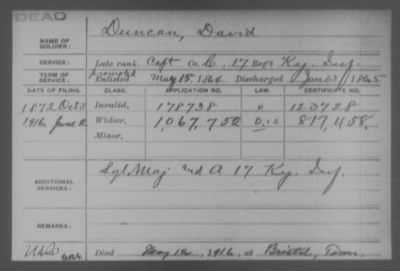 DEAD
NAME OF SOLDIER: Duncan, David
SERVICE: Late rank, Capt Co. C, 17 Reg't Ky. Inf.
TERM OF SERVICE: promoted
Enlisted May 15, 1864 Discharged Jan 23 1865
DATE OF FILING. CLASS. APPLICATION NO. LAW. CERTIFICATE NO.
1872 Oct 3 Invalid, 178738 123728
1916 June Widow, 1,067,752 817,458.
Minor,
ADDITIONAL SERVICES: Sgt Maj and A 17 Ky. Inf.
REMARKS:
Died May 1916, at Bristol, Tenn.